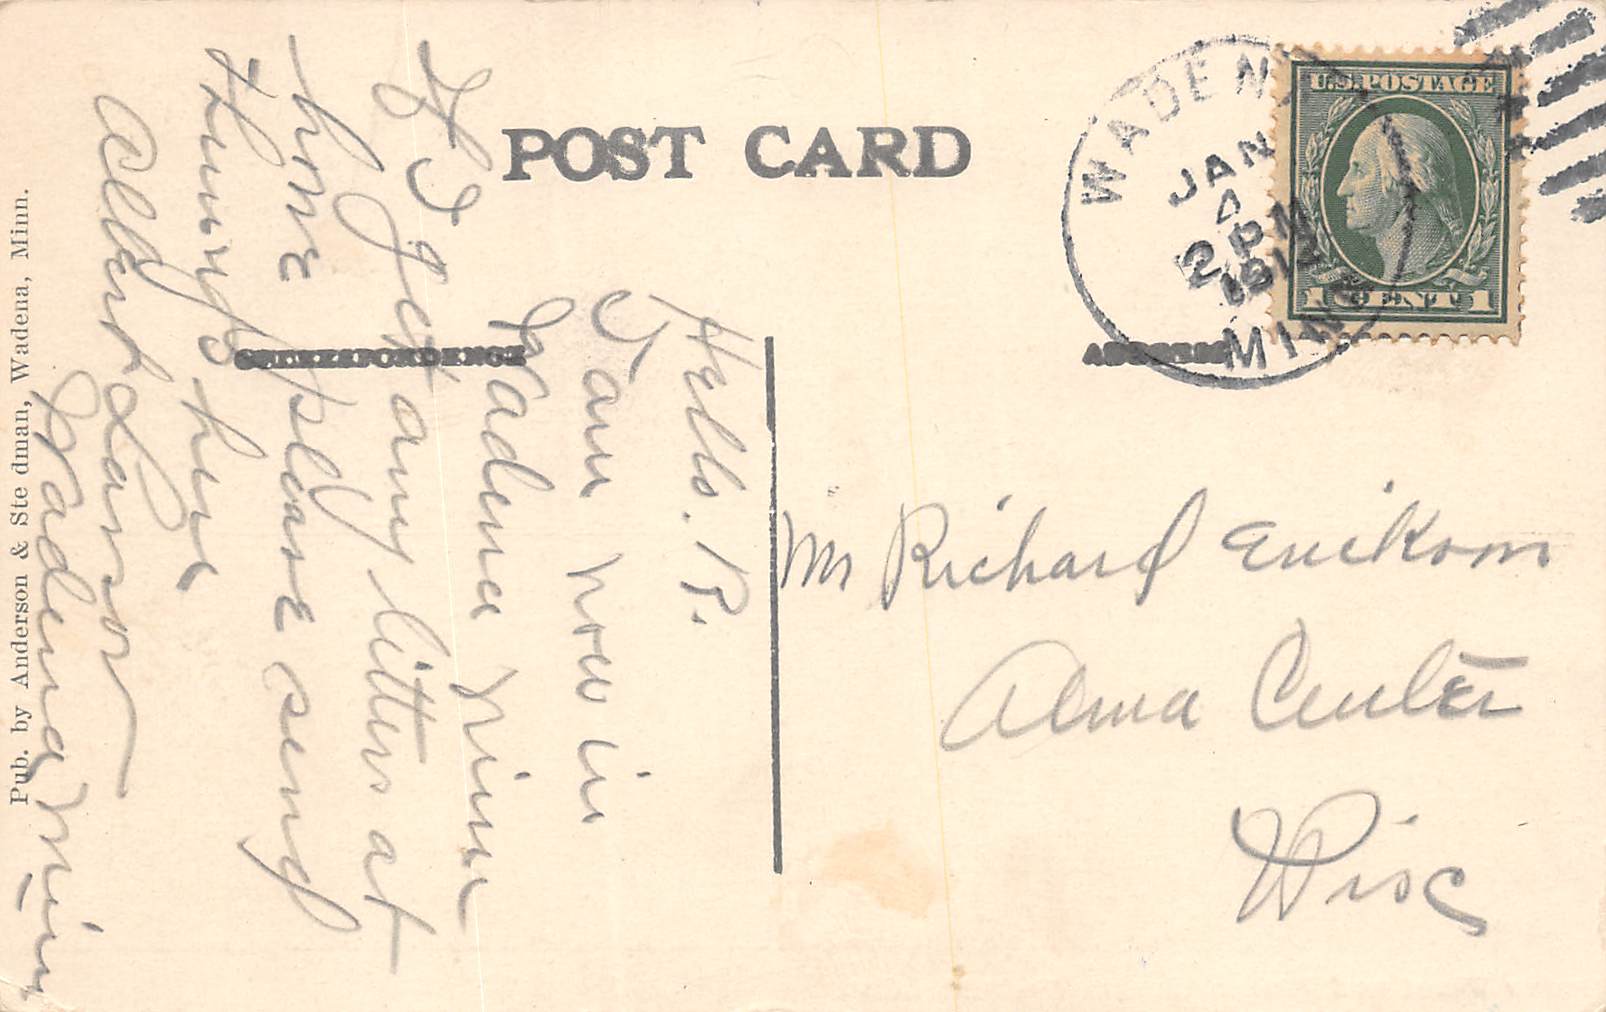 POST CARD
CORRESPONDENCE
ADDRESS
WADENA
JAN
4
2 PM
1912
MINN.
U.S. POSTAGE
1 CENT 1
Hello. R.
I am now in
Wadena Minn
If I get any litters at
home please send
them to here
Albert Larson
Wadena, Minn
Mr Richard Erikson
Alma Center
Wisc
Pub. by Anderson & Ste dman, Wadena, Minn.